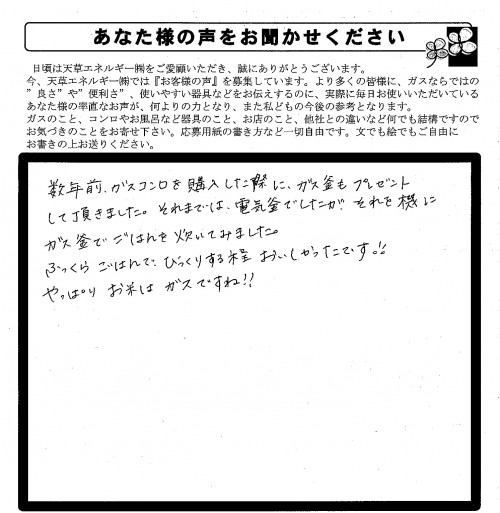 あなた様の声をお聞かせください
日頃は天草エネルギー㈱をご愛顧いただき、誠にありがとうございます。
今、天草エネルギー㈱では『お客様の声』を募集しています。より多くの皆様に、ガスならではの
”良さ”や”便利さ”、使いやすい器具などをお伝えするのに、実際に毎日お使いいただいている
あなた様の率直なお声が、何よりの力となり、また私どもの今後の参考となります。
ガスのこと、コンロやお風呂など器具のこと、お店のこと、他社との違いなど何でも結構ですので
お気づきのことをお寄せ下さい。応募用紙の書き方など一切自由です。文でも絵でもご自由に
お書きの上お送りください。
数年前、ガスコンロを購入した際に、ガス釜もプレゼント
して頂きました。それまでは、電気釜でしたが それを機に
ガス釜でごはんを炊いてみました。
ふっくら ごはんで、びっくりする程 おいしかったです!!
やっぱり お米は ガスですね!!